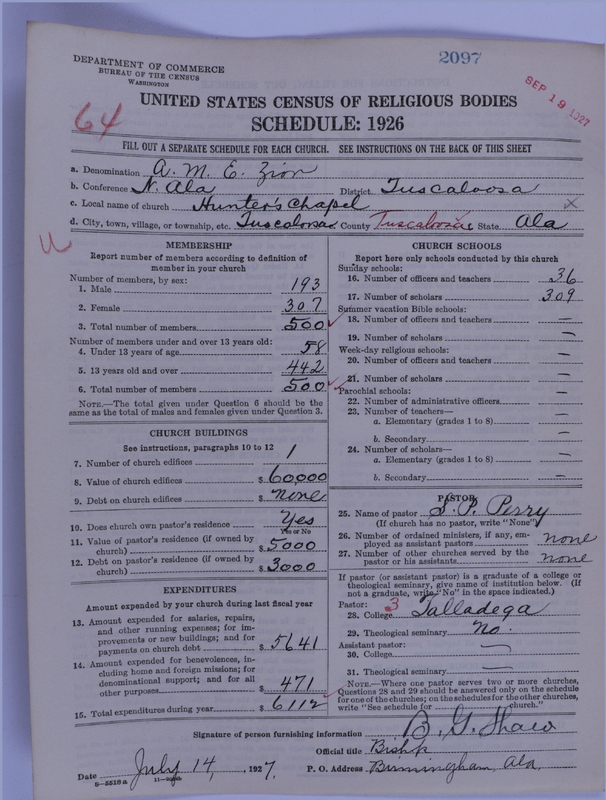 DEPARTMENT OF COMMERCE
BUREAU OF THE CENSUS
WASHINGTON
2097
SEP 19 1927
64
UNITED STATES CENSUS OF RELIGIOUS BODIES
SCHEDULE: 1926
FILL OUT A SEPARATE SCHEDULE FOR EACH CHURCH. SEE INSTRUCTIONS ON THE BACK OF THIS SHEET
a. Denomination A. M. E. Zion
b. Conference N. Ala District Tuscaloosa
c. Local name of church Hunter's Chapel
d. City, town, village, or township, etc. Tuscaloosa County Tuscaloosa State Ala
MEMBERSHIP
Report number of members according to definition of
member in your church
Number of members, by sex:
1. Male 193
2. Female 307
3. Total number of members 500
Number of members under and over 13 years old:
4. Under 13 years of age 58
5. 13 years old and over 442
6. Total number of members 500
NOTE.—The total given under Question 6 should be the
same as the total of males and females given under Question 3.
CHURCH BUILDINGS
See instructions, paragraphs 10 to 12
7. Number of church edifices 1
8. Value of church edifices $ 60,000
9. Debt on church edifices $ None
10. Does church own pastor's residence Yes
Yes or No
11. Value of pastor's residence (if owned by
church) $ 5000
12. Debt on pastor's residence (if owned by
church) $ 3000
EXPENDITURES
Amount expended by your church during last fiscal year
13. Amount expended for salaries, repairs,
and other running expenses; for im-
provements or new buildings; and for
payments on church debt $ 5641
14. Amount expended for benevolences, in-
cluding home and foreign missions; for
denominational support; and for all
other purposes $ 471
15. Total expenditures during year $ 6112
CHURCH SCHOOLS
Report here only schools conducted by this church
Sunday schools:
16. Number of officers and teachers 36
17. Number of scholars 309
Summer vacation Bible schools:
18. Number of officers and teachers —
19. Number of scholars —
Week-day religious schools:
20. Number of officers and teachers —
21. Number of scholars —
Parochial schools:
22. Number of administrative officers —
23. Number of teachers—
a. Elementary (grades 1 to 8) —
b. Secondary —
24. Number of scholars—
a. Elementary (grades 1 to 8) —
b. Secondary —
PASTOR
25. Name of pastor S. P. Perry
(If church has no pastor, write "None")
26. Number of ordained ministers, if any, em-
ployed as assistant pastors none
27. Number of other churches served by the
pastor or his assistants none
If pastor (or assistant pastor) is a graduate of a college or
theological seminary, give name of institution below. (If
not a graduate, write "No" in the space indicated.)
Pastor: 3
28. College Talladega
29. Theological seminary No.
Assistant pastor:
30. College —
31. Theological seminary —
NOTE.—Where one pastor serves two or more churches,
Questions 28 and 29 should be answered only on the schedule
for one of the churches; on the schedules for the other churches,
write "See schedule for church."
Signature of person furnishing information B. G. Shaw
Official title Bishop
Date July 14, 1927. P. O. Address Birmingham, Ala.